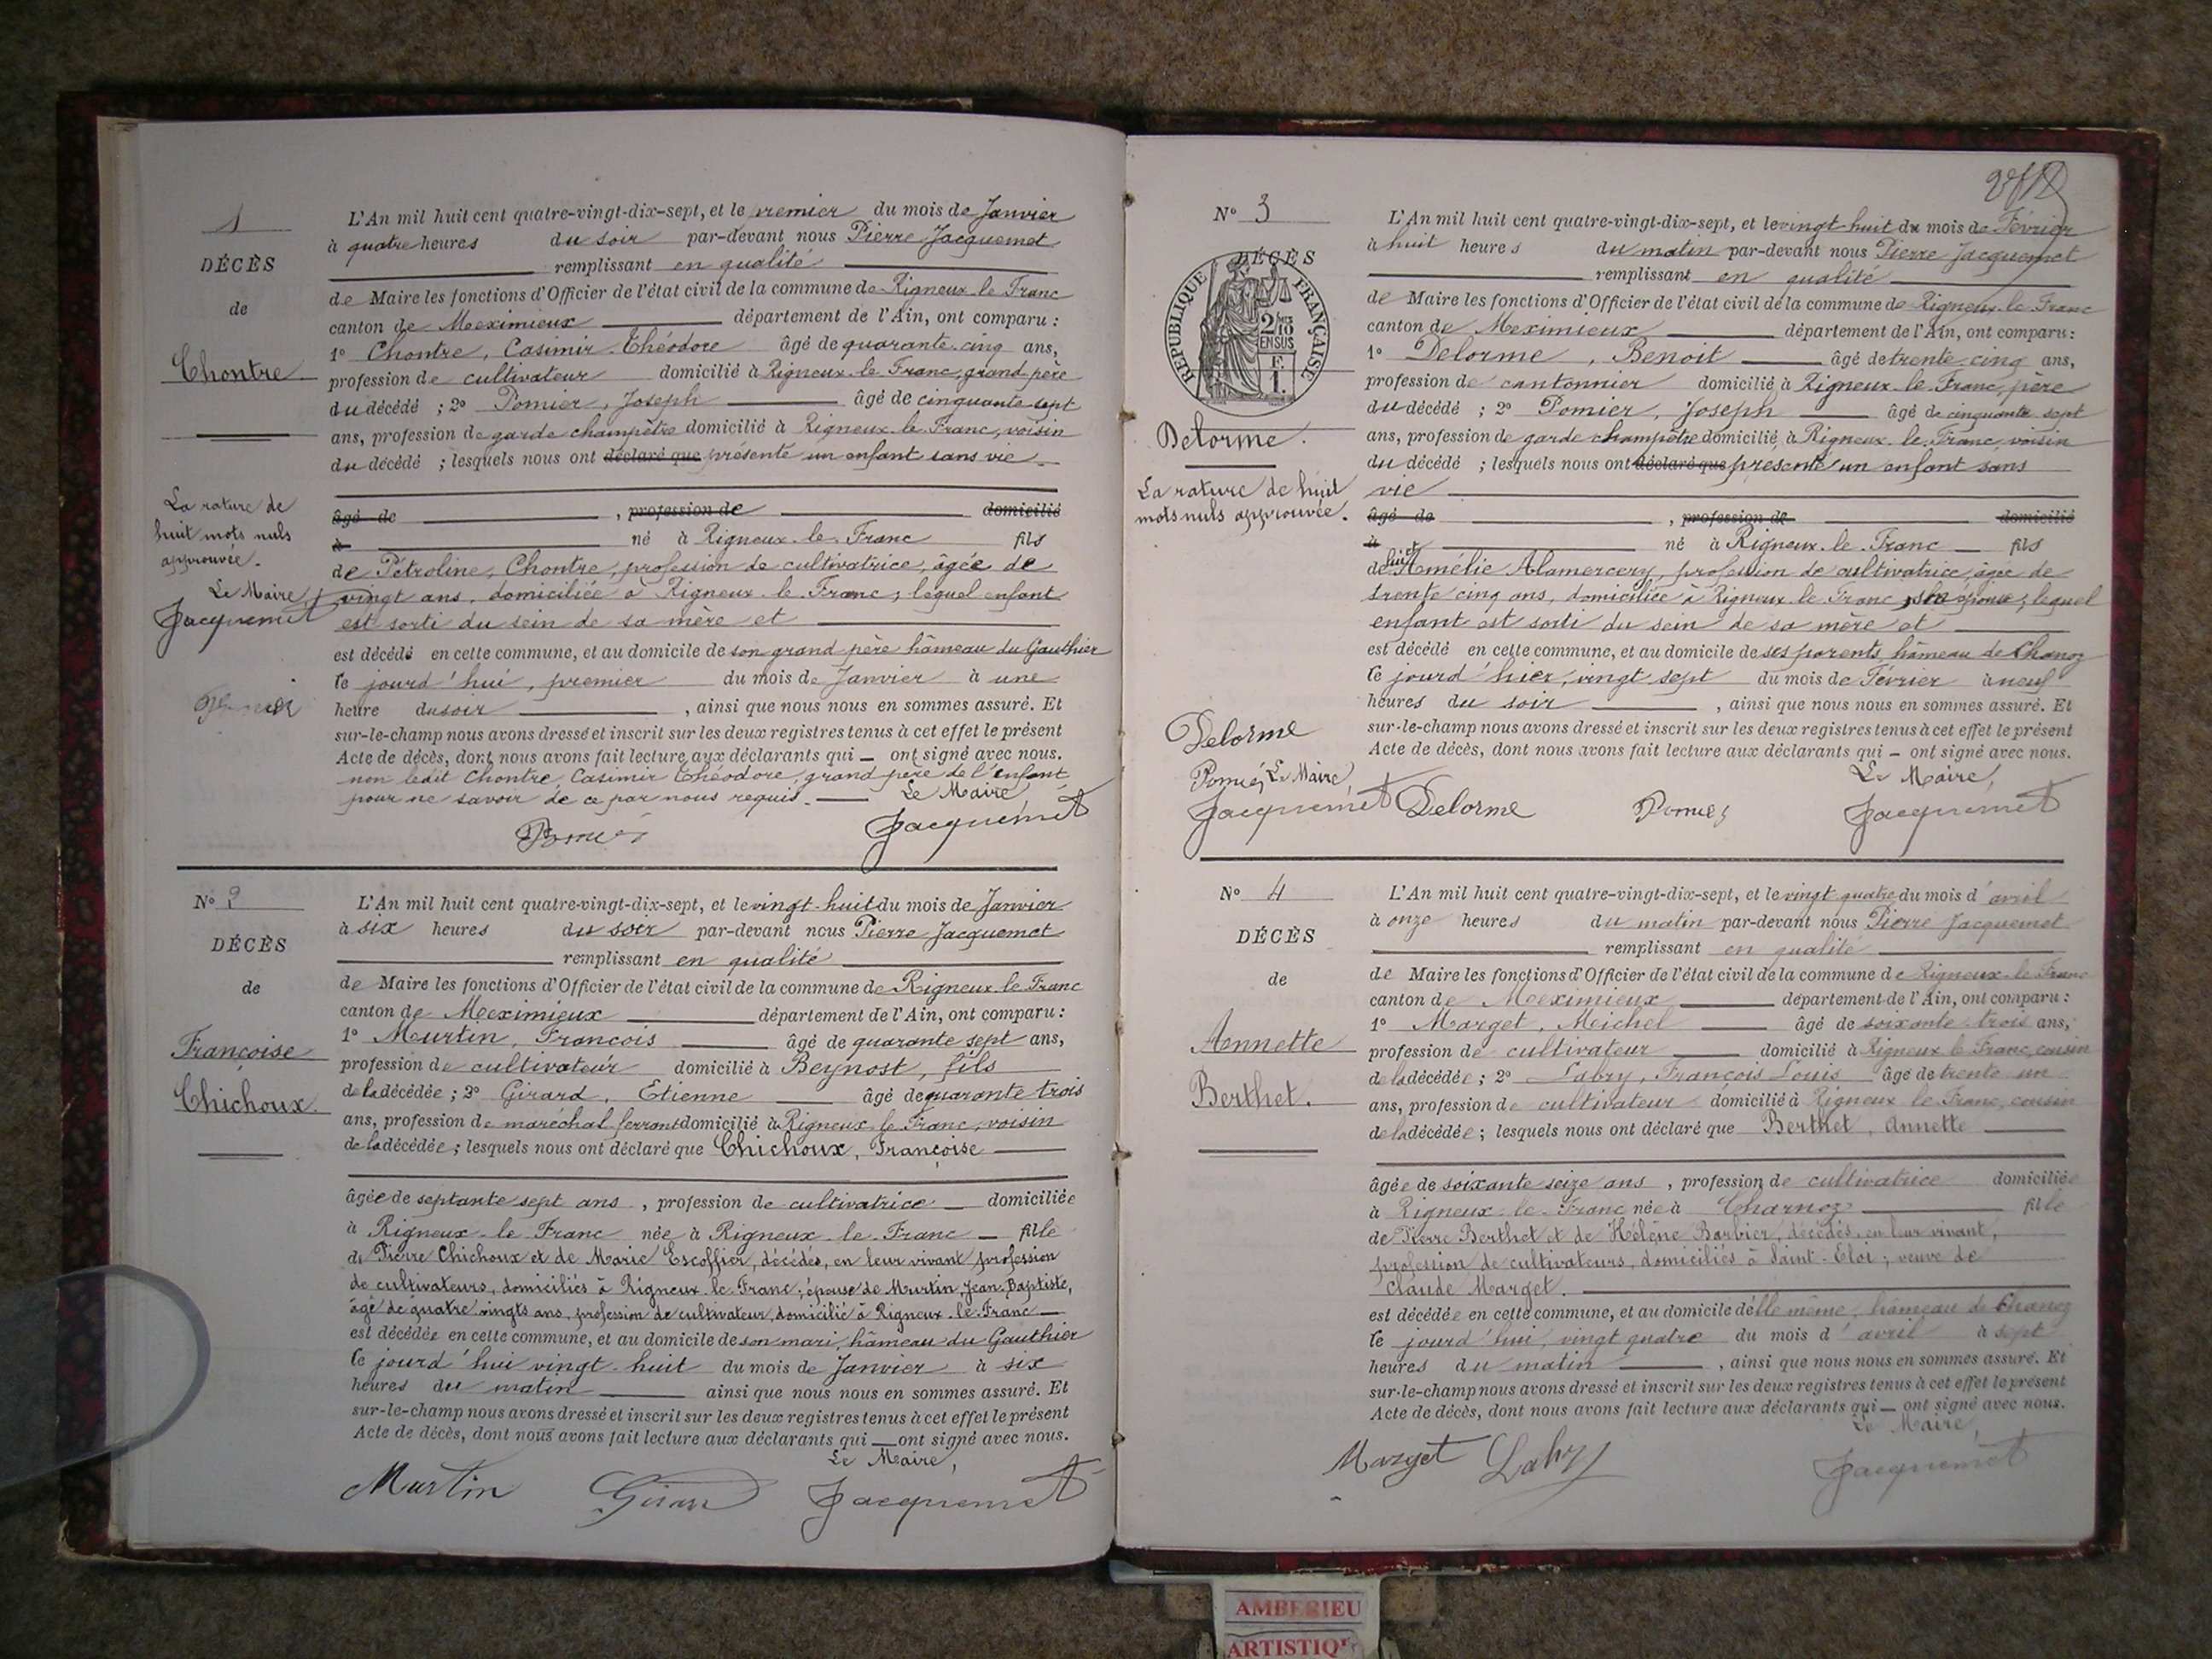 1
DÉCÈS
de
Chontre
La rature de
huit mots nuls
approuvée.
Le Maire,
Jacquemet
L'An mil huit cent quatre-vingt-dix-sept, et le premier du mois de Janvier
à quatre heures du soir par-devant nous Pierre Jacquemet
remplissant en qualité
de Maire les fonctions d'Officier de l'état civil de la commune de Rigneux-le-Franc
canton de Meximieux département de l'Ain, ont comparu :
1º Chontre, Casimir Théodore âgé de quarante-cinq ans,
profession de cultivateur domicilié à Rigneux-le-Franc, grand père
du décédé ; 2º Pomier, Joseph âgé de cinquante-sept
ans, profession de garde champêtre domicilié à Rigneux-le-Franc, voisin
du décédé ; lesquels nous ont déclaré que présenté un enfant sans vie
âgé de , profession de domicilié
à né à Rigneux-le-Franc fils
de Pétroline, Chontre, profession de cultivatrice, âgée de
vingt ans, domiciliée à Rigneux-le-Franc ; lequel enfant
est sorti du sein de sa mère et
est décédé en cette commune, et au domicile de son grand père hâmeau du Gauthier
le jourd'hui, premier du mois de Janvier à une
heure du soir , ainsi que nous nous en sommes assuré. Et
sur-le-champ nous avons dressé et inscrit sur les deux registres tenus à cet effet le présent
Acte de décès, dont nous avons fait lecture aux déclarants qui — ont signé avec nous.
non ledit Chontre, Casimir Théodore, grand père de l'enfant
pour ne savoir de ce par nous requis. Le Maire,
Pomier Jacquemet
Nº 2
DÉCÈS
de
Françoise
Chichoux.
L'An mil huit cent quatre-vingt-dix-sept, et le vingt-huit du mois de Janvier
à six heures du soir par-devant nous Pierre Jacquemet
remplissant en qualité
de Maire les fonctions d'Officier de l'état civil de la commune de Rigneux-le-Franc
canton de Meximieux département de l'Ain, ont comparu :
1º Murtin, François âgé de quarante sept ans,
profession de cultivateur domicilié à Beynost, fils
de la décédée ; 2º Girard, Etienne âgé de quarante trois
ans, profession de maréchal ferrant domicilié à Rigneux-le-Franc, voisin
de la décédée ; lesquels nous ont déclaré que Chichoux, Françoise
âgée de septante sept ans , profession de cultivatrice domiciliée
à Rigneux-le-Franc née à Rigneux-le-Franc fille
de Pierre Chichoux et de Marie Escoffier, décédés, en leur vivant profession
de cultivateurs, domiciliés à Rigneux-le-Franc ; épouse de Murtin, Jean-Baptiste,
âgé de quatre vingts ans, profession de cultivateur, domicilié à Rigneux-le-Franc
est décédée en cette commune, et au domicile de son mari, hâmeau du Gauthier
le jourd'hui vingt-huit du mois de Janvier à six
heures du matin ainsi que nous nous en sommes assuré. Et
sur-le-champ nous avons dressé et inscrit sur les deux registres tenus à cet effet le présent
Acte de décès, dont nous avons fait lecture aux déclarants qui — ont signé avec nous.
Le Maire,
Murtin Girard Jacquemet
Nº 3
DÉCÈS
RÉPUBLIQUE FRANÇAISE
2/10
EN SUS
F.
1.
Delorme.
La rature de huit
mots nuls approuvée.
Delorme
Pomier Le Maire,
Jacquemet
L'An mil huit cent quatre-vingt-dix-sept, et le vingt-huit du mois de Février
à huit heures du matin par-devant nous Pierre Jacquemet
remplissant en qualité
de Maire les fonctions d'Officier de l'état civil de la commune de Rigneux-le-Franc
canton de Meximieux département de l'Ain, ont comparu :
1º Delorme, Benoit âgé de trente cinq ans,
profession de cantonnier domicilié à Rigneux-le-Franc, père
du décédé ; 2º Pomier, Joseph âgé de cinquante sept
ans, profession de garde champêtre domicilié à Rigneux-le-Franc voisin
du décédé ; lesquels nous ont déclaré que présenté un enfant sans
vie
âgé de , profession de domicilié
à né à Rigneux-le-Franc fils
de lui et Amélie Alamercery, profession de cultivatrice, âgée de
trente cinq ans, domiciliée à Rigneux-le-Franc, son épouse ; lequel
enfant est sorti du sein de sa mère et
est décédé en cette commune, et au domicile de ses parents hâmeau de Chanoz
le jourd'hier, vingt sept du mois de Février à neuf
heures du soir , ainsi que nous nous en sommes assuré. Et
sur-le-champ nous avons dressé et inscrit sur les deux registres tenus à cet effet le présent
Acte de décès, dont nous avons fait lecture aux déclarants qui — ont signé avec nous.
Le Maire,
Delorme Pomier Jacquemet
Nº 4
DÉCÈS
de
Annette
Berthet.
L'An mil huit cent quatre-vingt-dix-sept, et le vingt quatre du mois d'avril
à onze heures du matin par-devant nous Pierre Jacquemet
remplissant en qualité
de Maire les fonctions d'Officier de l'état civil de la commune de Rigneux-le-Franc
canton de Meximieux département de l'Ain, ont comparu :
1º Marget, Meichel âgé de soixante-trois ans,
profession de cultivateur domicilié à Rigneux-le-Franc, cousin
de la décédée ; 2º Labry, François Louis âgé de trente une
ans, profession de cultivateur domicilié à Rigneux-le-Franc, cousin
de la décédée ; lesquels nous ont déclaré que Berthet, Annette
âgée de soixante seize ans , profession de cultivatrice domiciliée
à Rigneux-le-Franc née à Charnoz fille
de Pierre Berthet et de Hélène Barbier, décédés, en leur vivant,
profession de cultivateurs, domiciliés à Saint-Eloi ; veuve de
Claude Marget.
est décédée en cette commune, et au domicile d'elle même, hâmeau de Chanoz
le jourd'hui, vingt quatre du mois d'avril à sept
heures du matin , ainsi que nous nous en sommes assuré. Et
sur-le-champ nous avons dressé et inscrit sur les deux registres tenus à cet effet le présent
Acte de décès, dont nous avons fait lecture aux déclarants qui — ont signé avec nous.
Le Maire,
Marget Labry Jacquemet
AMBERIEU
ARTISTIQ